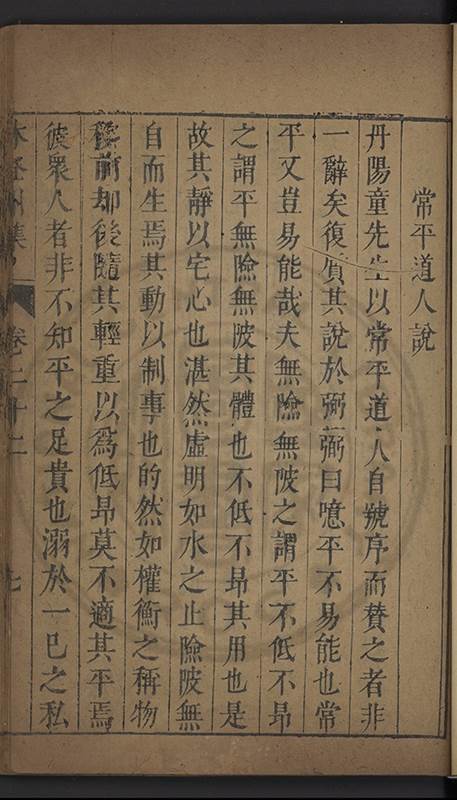 常平道人說
丹陽童先生以常平道人自號序而贊之者非
一辭矣復質其說於弼弼曰噫平不易能也常
平又豈易能哉夫無險無陂之謂平不低不昂
之謂平無險無陂其體也不低不昂其用也是
故其靜以宅心也湛然虛明如水之止險陂無
自而生焉其動以制事也的然如權衡之稱物
前却後隨其輕重以爲低昂莫不適其平焉
彼衆人者非不知平之足貴也溺於一巳之私
集 卷二十二 七